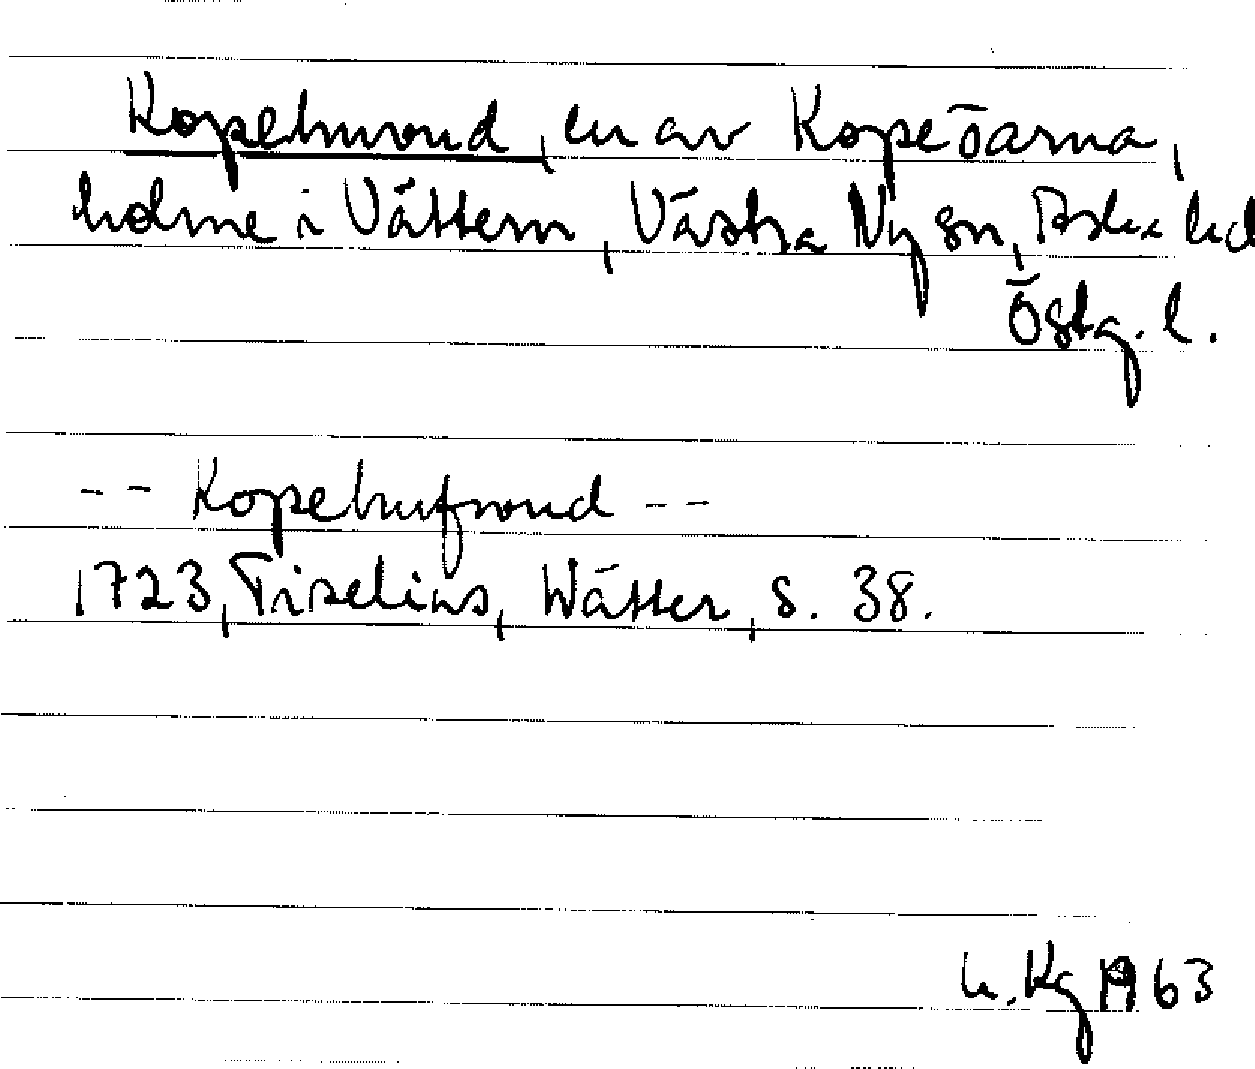 Kopehuvud, en av Kopeöarna,
holme i Vättern, Västra Ny sn, Aska hd
Östg. l.
-- Kopehufvud --
1723, Tiselius, Wätter, s. 38.
Kg 1963